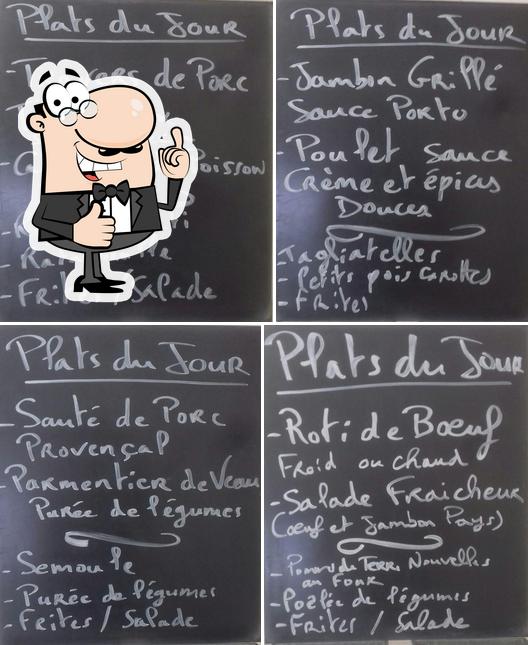 Plats du Jour
de Porc
Poisson
- Frites / Salade
Plats du Jour
- Jambon Grillé
Sauce Porto
- Poulet Sauce
Crème et épices
Douces
Tagliatelles
- Petits pois Carottes
- Frites
Plats du Jour
- Sauté de Porc
Provençal
- Parmentier de Veau
Purée de légumes
- Semoule
- Purée de légumes
- Frites / Salade
Plats du Jour
- Roti de Boeuf
Froid ou chaud
- Salade Fraicheur
(oeuf et Jambon Pays)
- Pommes de Terre Nouvelles
au Four
- Poelée de légumes
- Frites / Salade